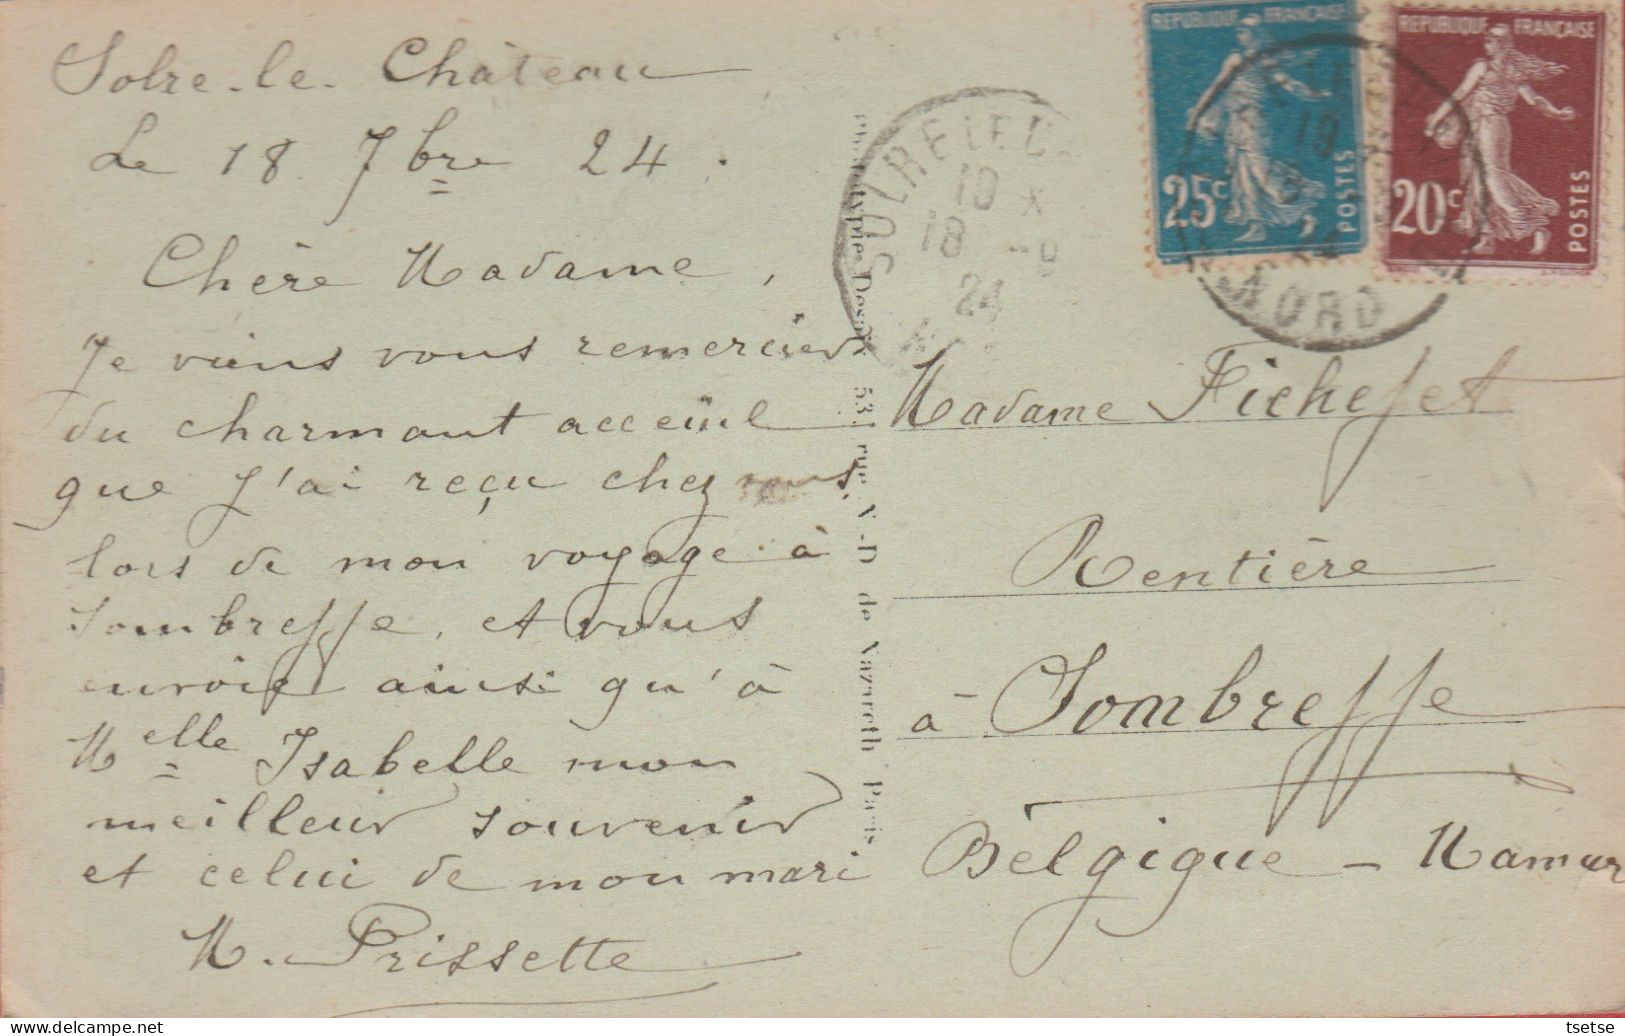 Solre-le-Château
Le 18 7bre 24.
Chère Madame,
Je viens vous remercier
du charmant acceuil
que j'ai reçu chez vous,
lors de mon voyage à
Sombreffe, et vous
envoie ainsi qu'à
Melle Isabelle mon
meilleur souvenir
et celui de mon mari
M. Prissette
Phototypie Desaix 53, rue N-D de Nazareth Paris
SOLRE LE
10 *
18 -9
24
REPUBLIQUE FRANÇAISE
25c
POSTES
REPUBLIQUE FRANÇAISE
20c
POSTES
NORD
Madame Fichefet
Rentière
à Sombreffe
Belgique - Namur
tsetse